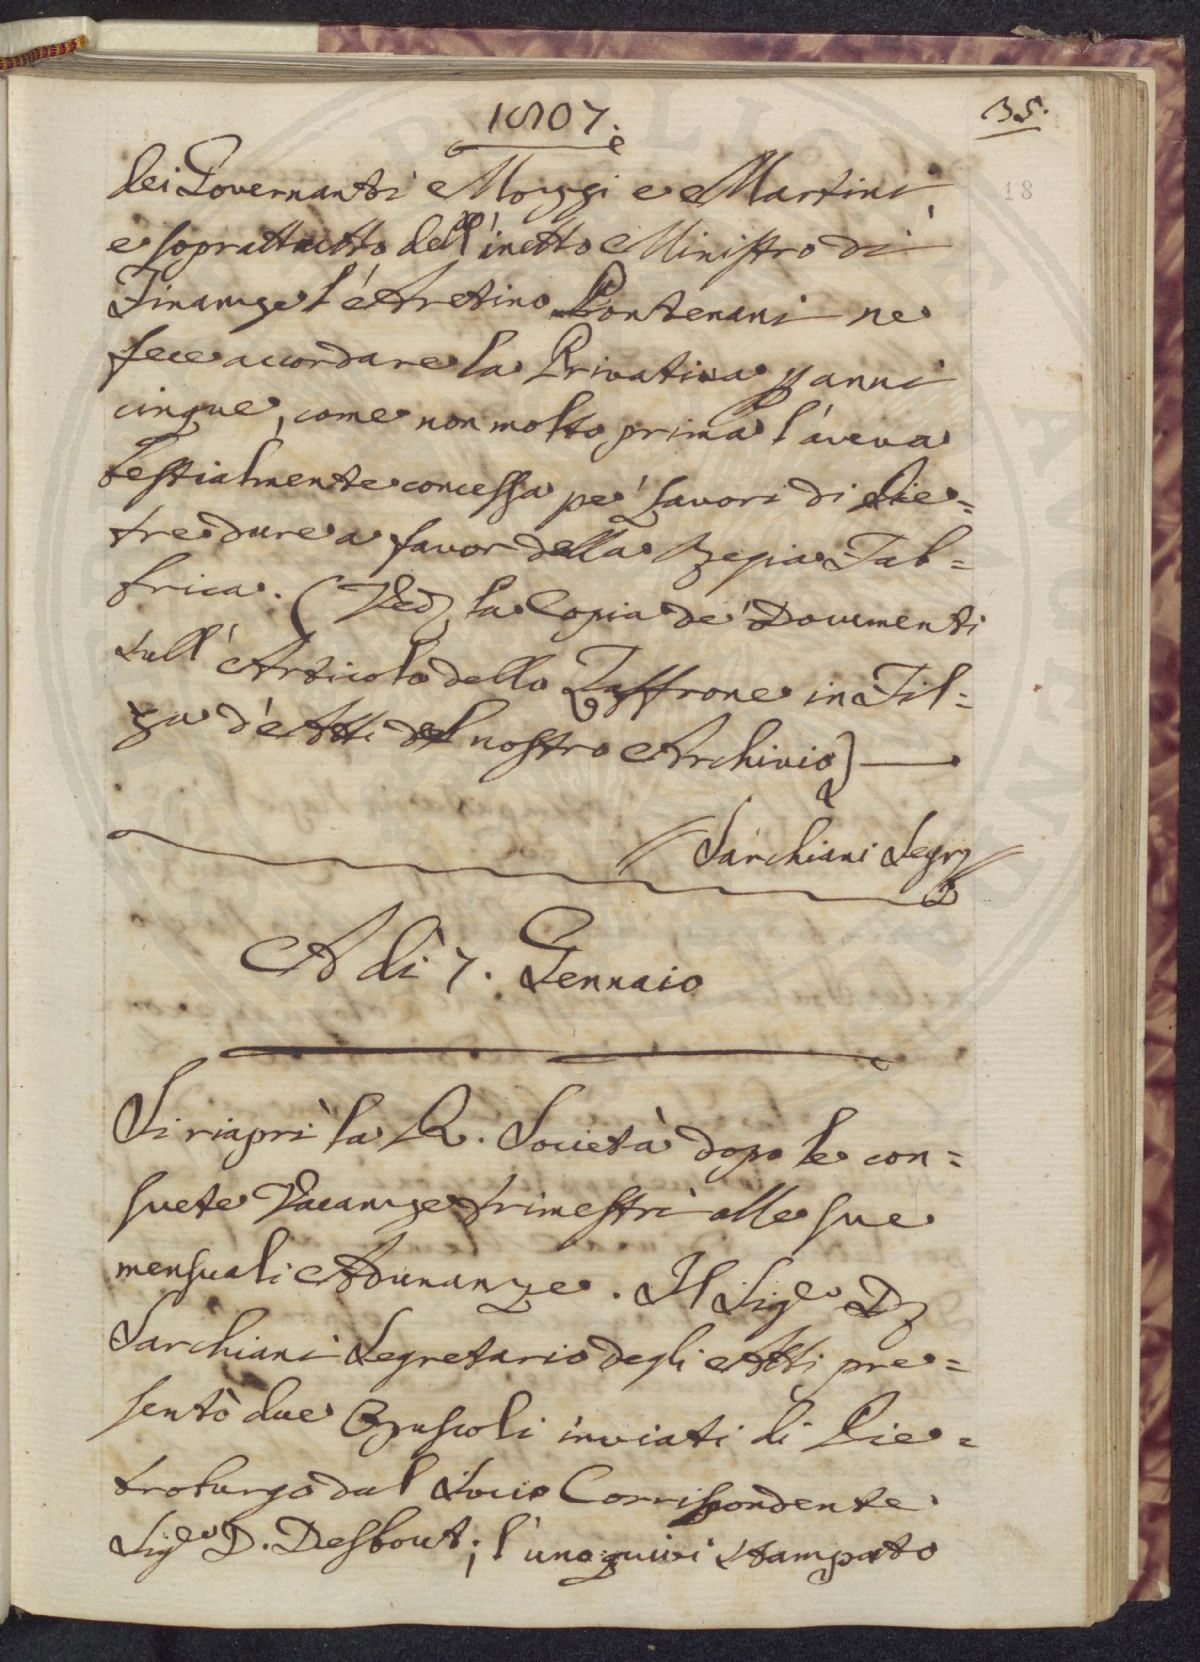 1807.
35.
18
dei Governanti Mozzi e Martini,
e soprattutto dell'inetto Ministro di
Finanze l'Aretino Pontenani ne
fece accordare la Privativa p anni
cinque, come non molto prima l'aveva
bestialmente concessa pe' Lavori di Pie=
tre dure a favor della Regia Fab=
brica. (Ved. la Copia de' Documenti
sull'Articolo dello Zaffrone in Fil=
za d'Atti del nostro Archivio)
Sarchiani Segr.
A dì 7. Gennaio
Si riaprì la R. Società dopo le con=
suete Vacanze trimestri alle sue
mensuali Adunanze. Il Sig.e D.
Sarchiani Segretario degli Atti pre=
sentò due Opuscoli inviati di Pie=
troburgo dal Socio Corrispondente
Sig.e D. Desbout; l'uno quivi stampato